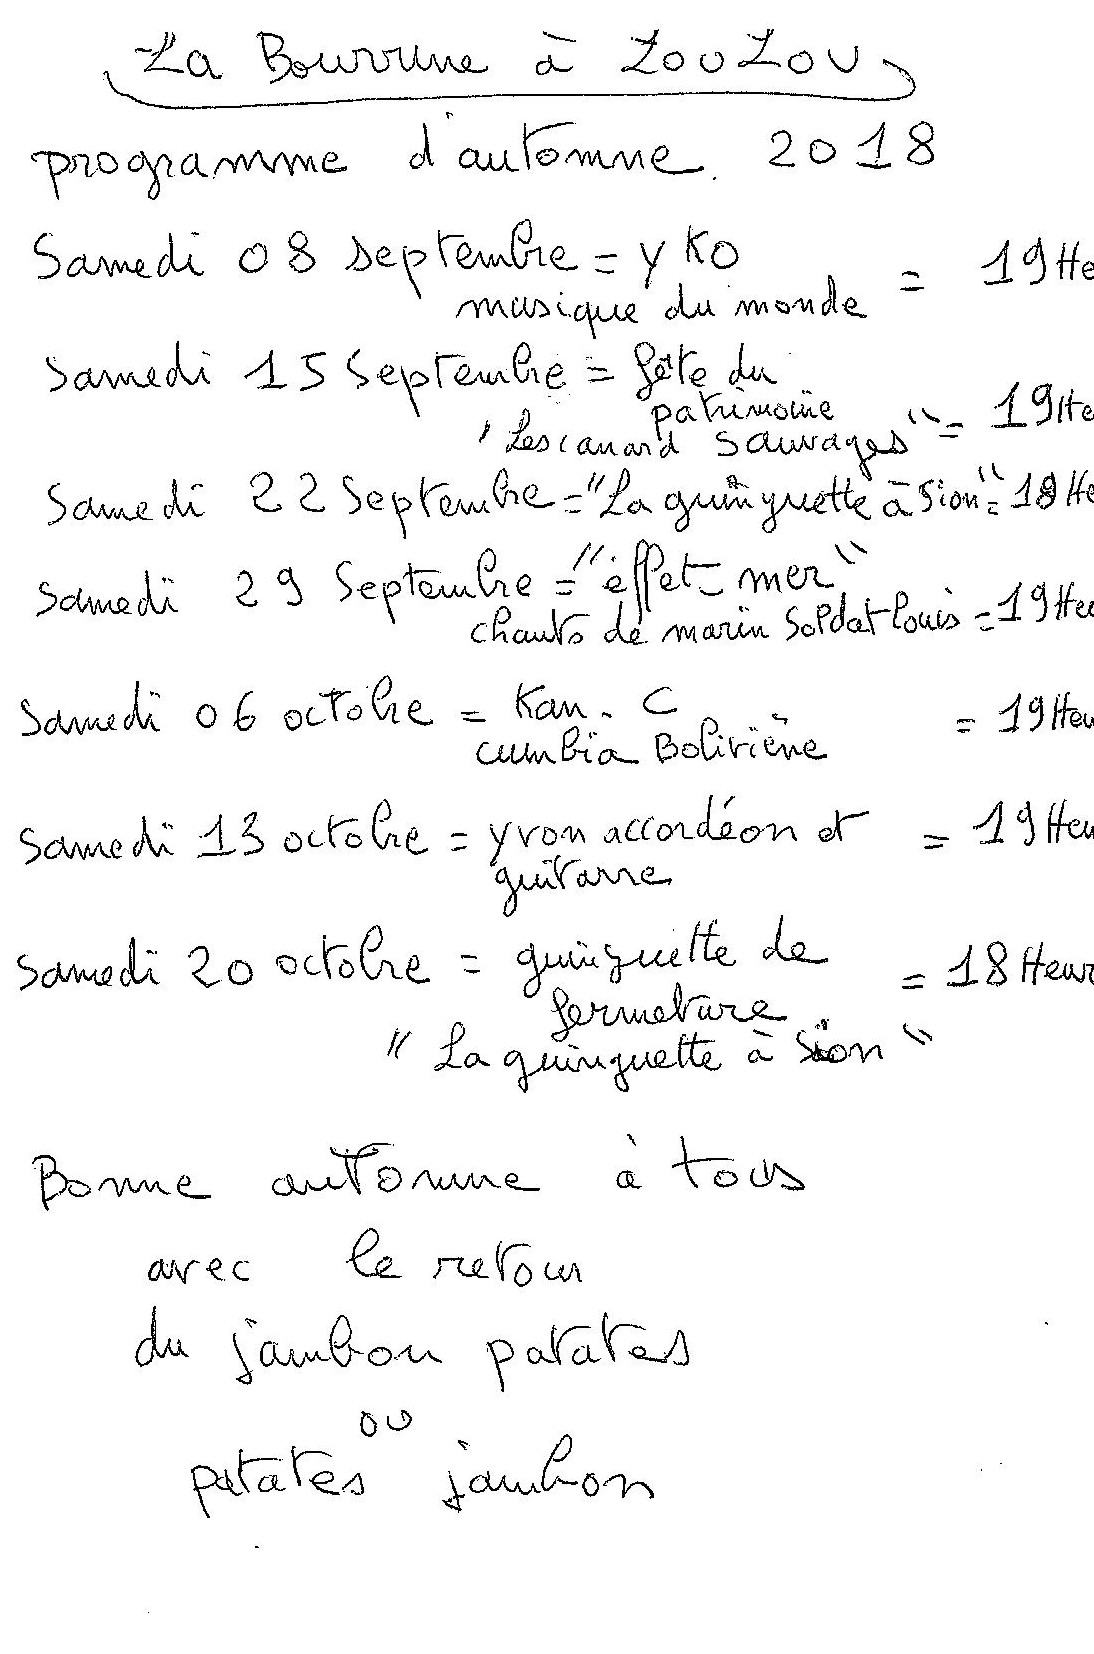 La Bourrine à LouLou
programme d'automne. 2018
Samedi 08 septembre = yko = 19He
musique du monde
Samedi 15 Septembre = fête du
patrimoine = 19He
" Les canard sauvages "
Samedi 22 Septembre = "La guinguette à Sion" = 18He
Samedi 29 Septembre = "effet-mer"
chants de marin Soldat Louis = 19Heu
Samedi 06 octobre = Kan. C = 19Heu
cumbia Boliviène
Samedi 13 octobre = yvon accordéon et = 19Heu
guitarre
Samedi 20 octobre = guinguette de = 18Heur
fermeture
" La guinguette à Sion "
Bonne automne à tous
avec le retour
du jambon patates
ou
patates jambon